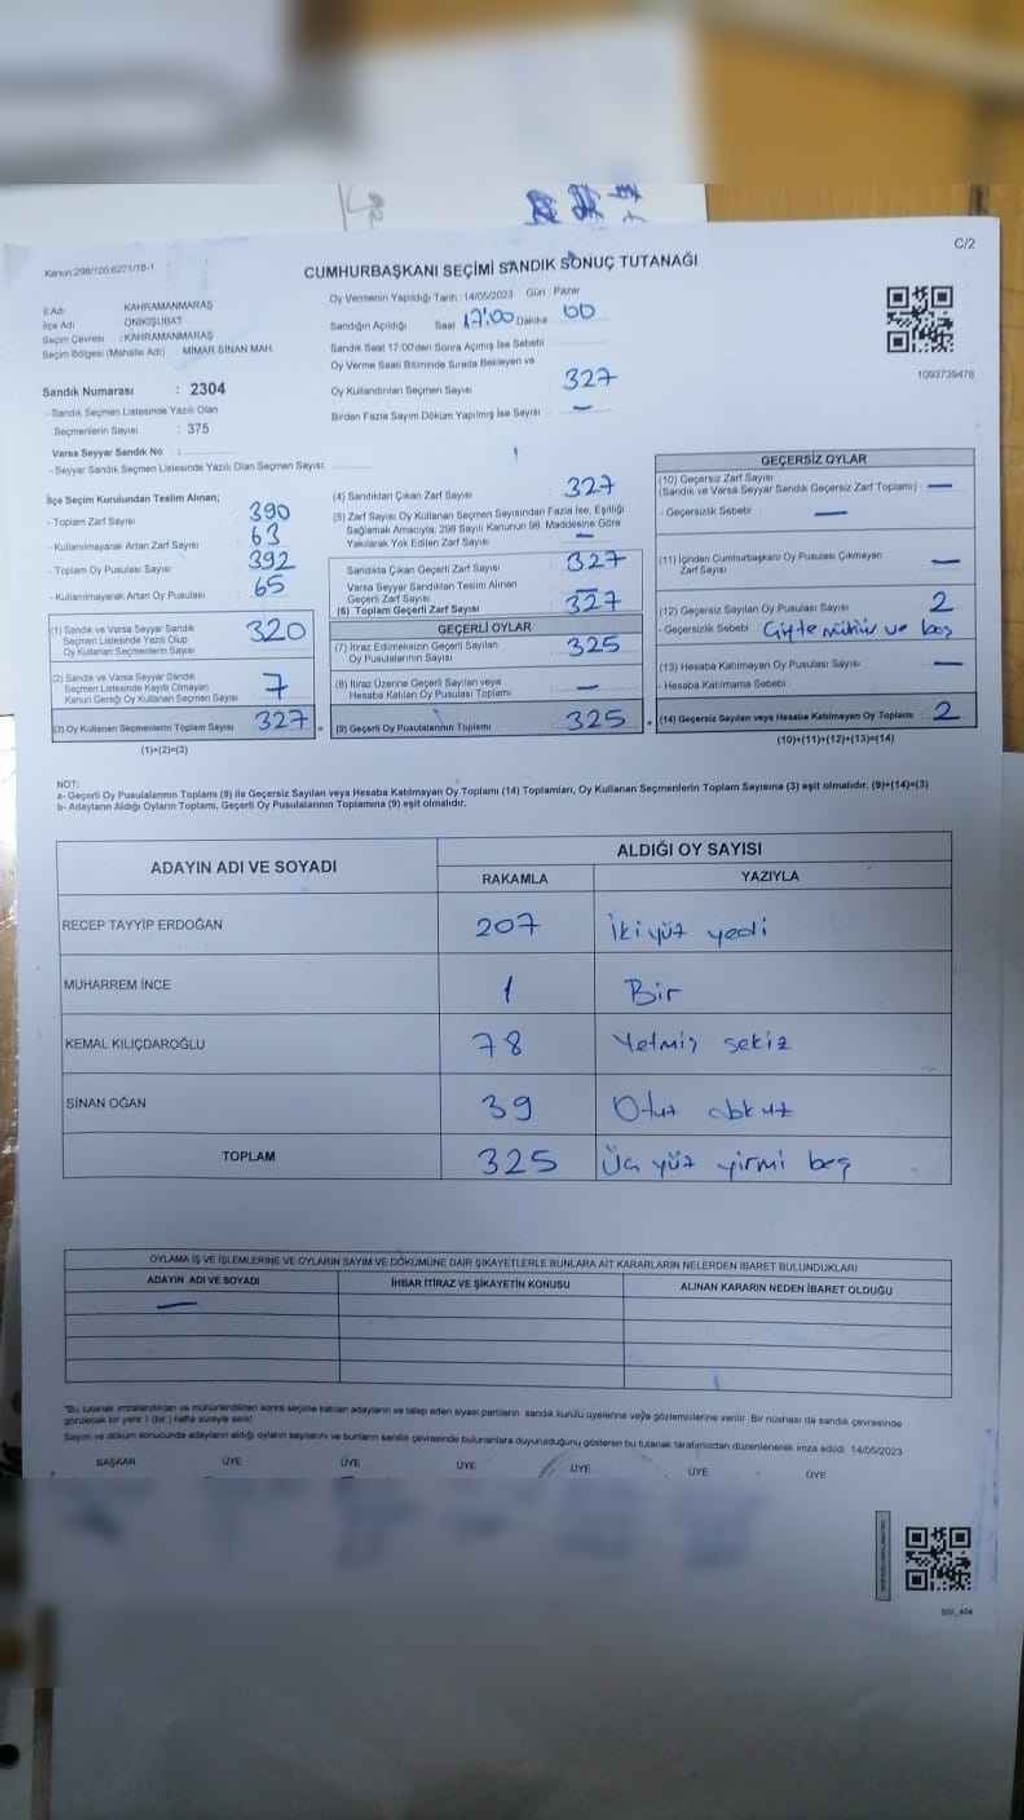 C/2
Kanun:298/105:6271/TB-1
CUMHURBAŞKANI SEÇİMİ SANDIK SONUÇ TUTANAĞI
İl Adı : KAHRAMANMARAŞ
İlçe Adı : ONİKİŞUBAT
Seçim Çevresi : KAHRAMANMARAŞ
Seçim Bölgesi (Mahalle Adı) : MİMAR SİNAN MAH.
Sandık Numarası : 2304
- Sandık Seçmen Listesinde Yazılı Olan
Seçmenlerin Sayısı : 375
Varsa Seyyar Sandık No :
- Seyyar Sandık Seçmen Listesinde Yazılı Olan Seçmen Sayısı:
Oy Vermenin Yapıldığı Tarih : 14/05/2023 Gün : Pazar
Sandığın Açıldığı Saat 17:00 Dakika 00
Sandık Saat 17:00'den Sonra Açılmış İse Sebebi
Oy Verme Saati Bitiminde Sırada Bekleyen ve
Oy Kullandırılan Seçmen Sayısı 327
Birden Fazla Sayım Döküm Yapılmış İse Sayısı —
1093739478
İlçe Seçim Kurulundan Teslim Alınan;
- Toplam Zarf Sayısı 390
- Kullanılmayarak Artan Zarf Sayısı 63
- Toplam Oy Pusulası Sayısı 392
- Kullanılmayarak Artan Oy Pusulası 65
(1) Sandık ve Varsa Seyyar Sandık
Seçmen Listesinde Yazılı Olup
Oy Kullanan Seçmenlerin Sayısı 320
(2) Sandık ve Varsa Seyyar Sandık
Seçmen Listesinde Kayıtlı Olmayan
Kanun Gereği Oy Kullanan Seçmen Sayısı 7
(3) Oy Kullanan Seçmenlerin Toplam Sayısı 327
(1)+(2)=(3)
(4) Sandıktan Çıkan Zarf Sayısı 327
(5) Zarf Sayısı Oy Kullanan Seçmen Sayısından Fazla İse, Eşitliği
Sağlamak Amacıyla, 298 Sayılı Kanunun 98. Maddesine Göre
Yakılarak Yok Edilen Zarf Sayısı —
Sandıkta Çıkan Geçerli Zarf Sayısı 327
Varsa Seyyar Sandıktan Teslim Alınan
Geçerli Zarf Sayısı —
(6) Toplam Geçerli Zarf Sayısı 327
GEÇERLİ OYLAR
(7) İtiraz Edilmeksizin Geçerli Sayılan
Oy Pusulalarının Sayısı 325
(8) İtiraz Üzerine Geçerli Sayılan veya
Hesaba Katılan Oy Pusulası Toplamı —
(9) Geçerli Oy Pusulalarının Toplamı 325
GEÇERSİZ OYLAR
(10) Geçersiz Zarf Sayısı
(Sandık ve Varsa Seyyar Sandık Geçersiz Zarf Toplamı) —
- Geçersizlik Sebebi —
(11) İçinden Cumhurbaşkanı Oy Pusulası Çıkmayan
Zarf Sayısı —
(12) Geçersiz Sayılan Oy Pusulası Sayısı 2
- Geçersizlik Sebebi Çifte mühür ve boş
(13) Hesaba Katılmayan Oy Pusulası Sayısı —
- Hesaba Katılmama Sebebi
(14) Geçersiz Sayılan veya Hesaba Katılmayan Oy Toplamı 2
(10)+(11)+(12)+(13)=(14)
NOT:
a- Geçerli Oy Pusulalarının Toplamı (9) ile Geçersiz Sayılan veya Hesaba Katılmayan Oy Toplamı (14) Toplamları, Oy Kullanan Seçmenlerin Toplam Sayısına (3) eşit olmalıdır. (9)+(14)=(3)
b- Adayların Aldığı Oyların Toplamı, Geçerli Oy Pusulalarının Toplamına (9) eşit olmalıdır.
ADAYIN ADI VE SOYADI
ALDIĞI OY SAYISI
RAKAMLA YAZIYLA
RECEP TAYYİP ERDOĞAN 207 İkiyüz yedi
MUHARREM İNCE 1 Bir
KEMAL KILIÇDAROĞLU 78 Yetmiş sekiz
SİNAN OĞAN 39 Otuz dokuz
TOPLAM 325 Üç yüz yirmi beş
OYLAMA İŞ VE İŞLEMLERİNE VE OYLARIN SAYIM VE DÖKÜMÜNE DAİR ŞİKAYETLERLE BUNLARA AİT KARARLARIN NELERDEN İBARET BULUNDUKLARI
ADAYIN ADI VE SOYADI İHBAR İTİRAZ VE ŞİKAYETİN KONUSU ALINAN KARARIN NEDEN İBARET OLDUĞU
—
"Bu tutanak imzalandıktan ve mühürlendikten sonra seçime katılan adayların ve talep eden siyasi partilerin sandık kurulu üyelerine veya gözlemcilerine verilir. Bir nüshası da sandık çevresinde
görülecek bir yere 1 (bir) hafta süreyle asılır.
Sayım ve döküm sonucunda adayların aldığı oyların sayılarını ve bunların sandık çevresinde bulunanlara duyurulduğunu gösteren bu tutanak tarafımızdan düzenlenerek imza edildi. 14/05/2023
BAŞKAN ÜYE ÜYE ÜYE ÜYE ÜYE ÜYE